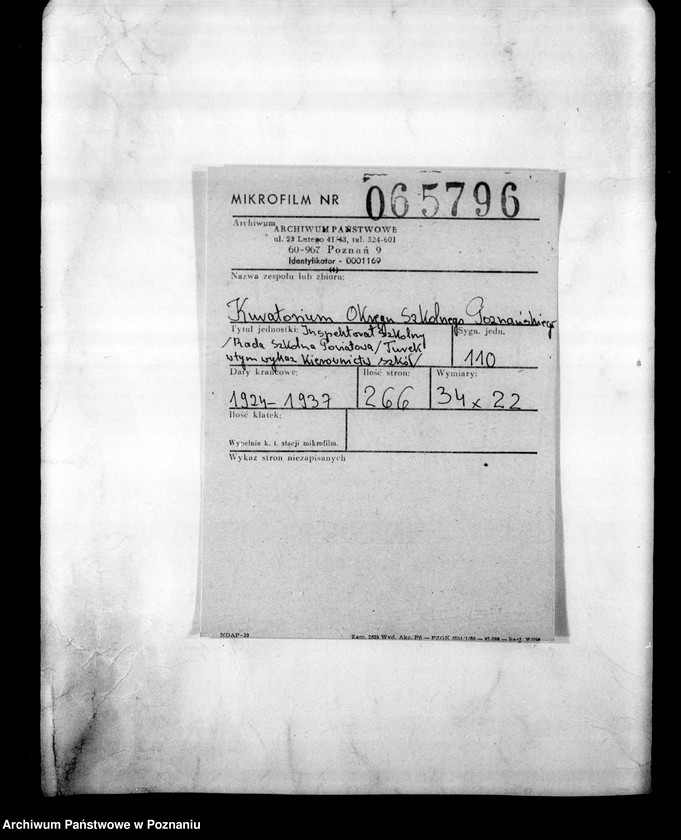 MIKROFILM NR 065796
Archiwum
ARCHIWUM PAŃSTWOWE
ul. 23 Lutego 41/43, tel. 524-601
60-967 Poznań 9
Identyfikator - 0001169
Nazwa zespołu lub zbioru:
Kuratorium Okręgu Szkolnego Poznańskiego
Tytuł jednostki: Inspektorat Szkolny
/Rada Szkolna Powiatowa/ Turek
w tym wykaz kierownictw szkół/
Sygn. jedn.
110
Daty krańcowe: Ilość stron: Wymiary:
1924-1937 266 34 x 22
Ilość klatek:
Wypełnia k. t. stacji mikrofilm.
Wykaz stron niezapisanych
NDAP-10
Archiwum Państwowe w Poznaniu